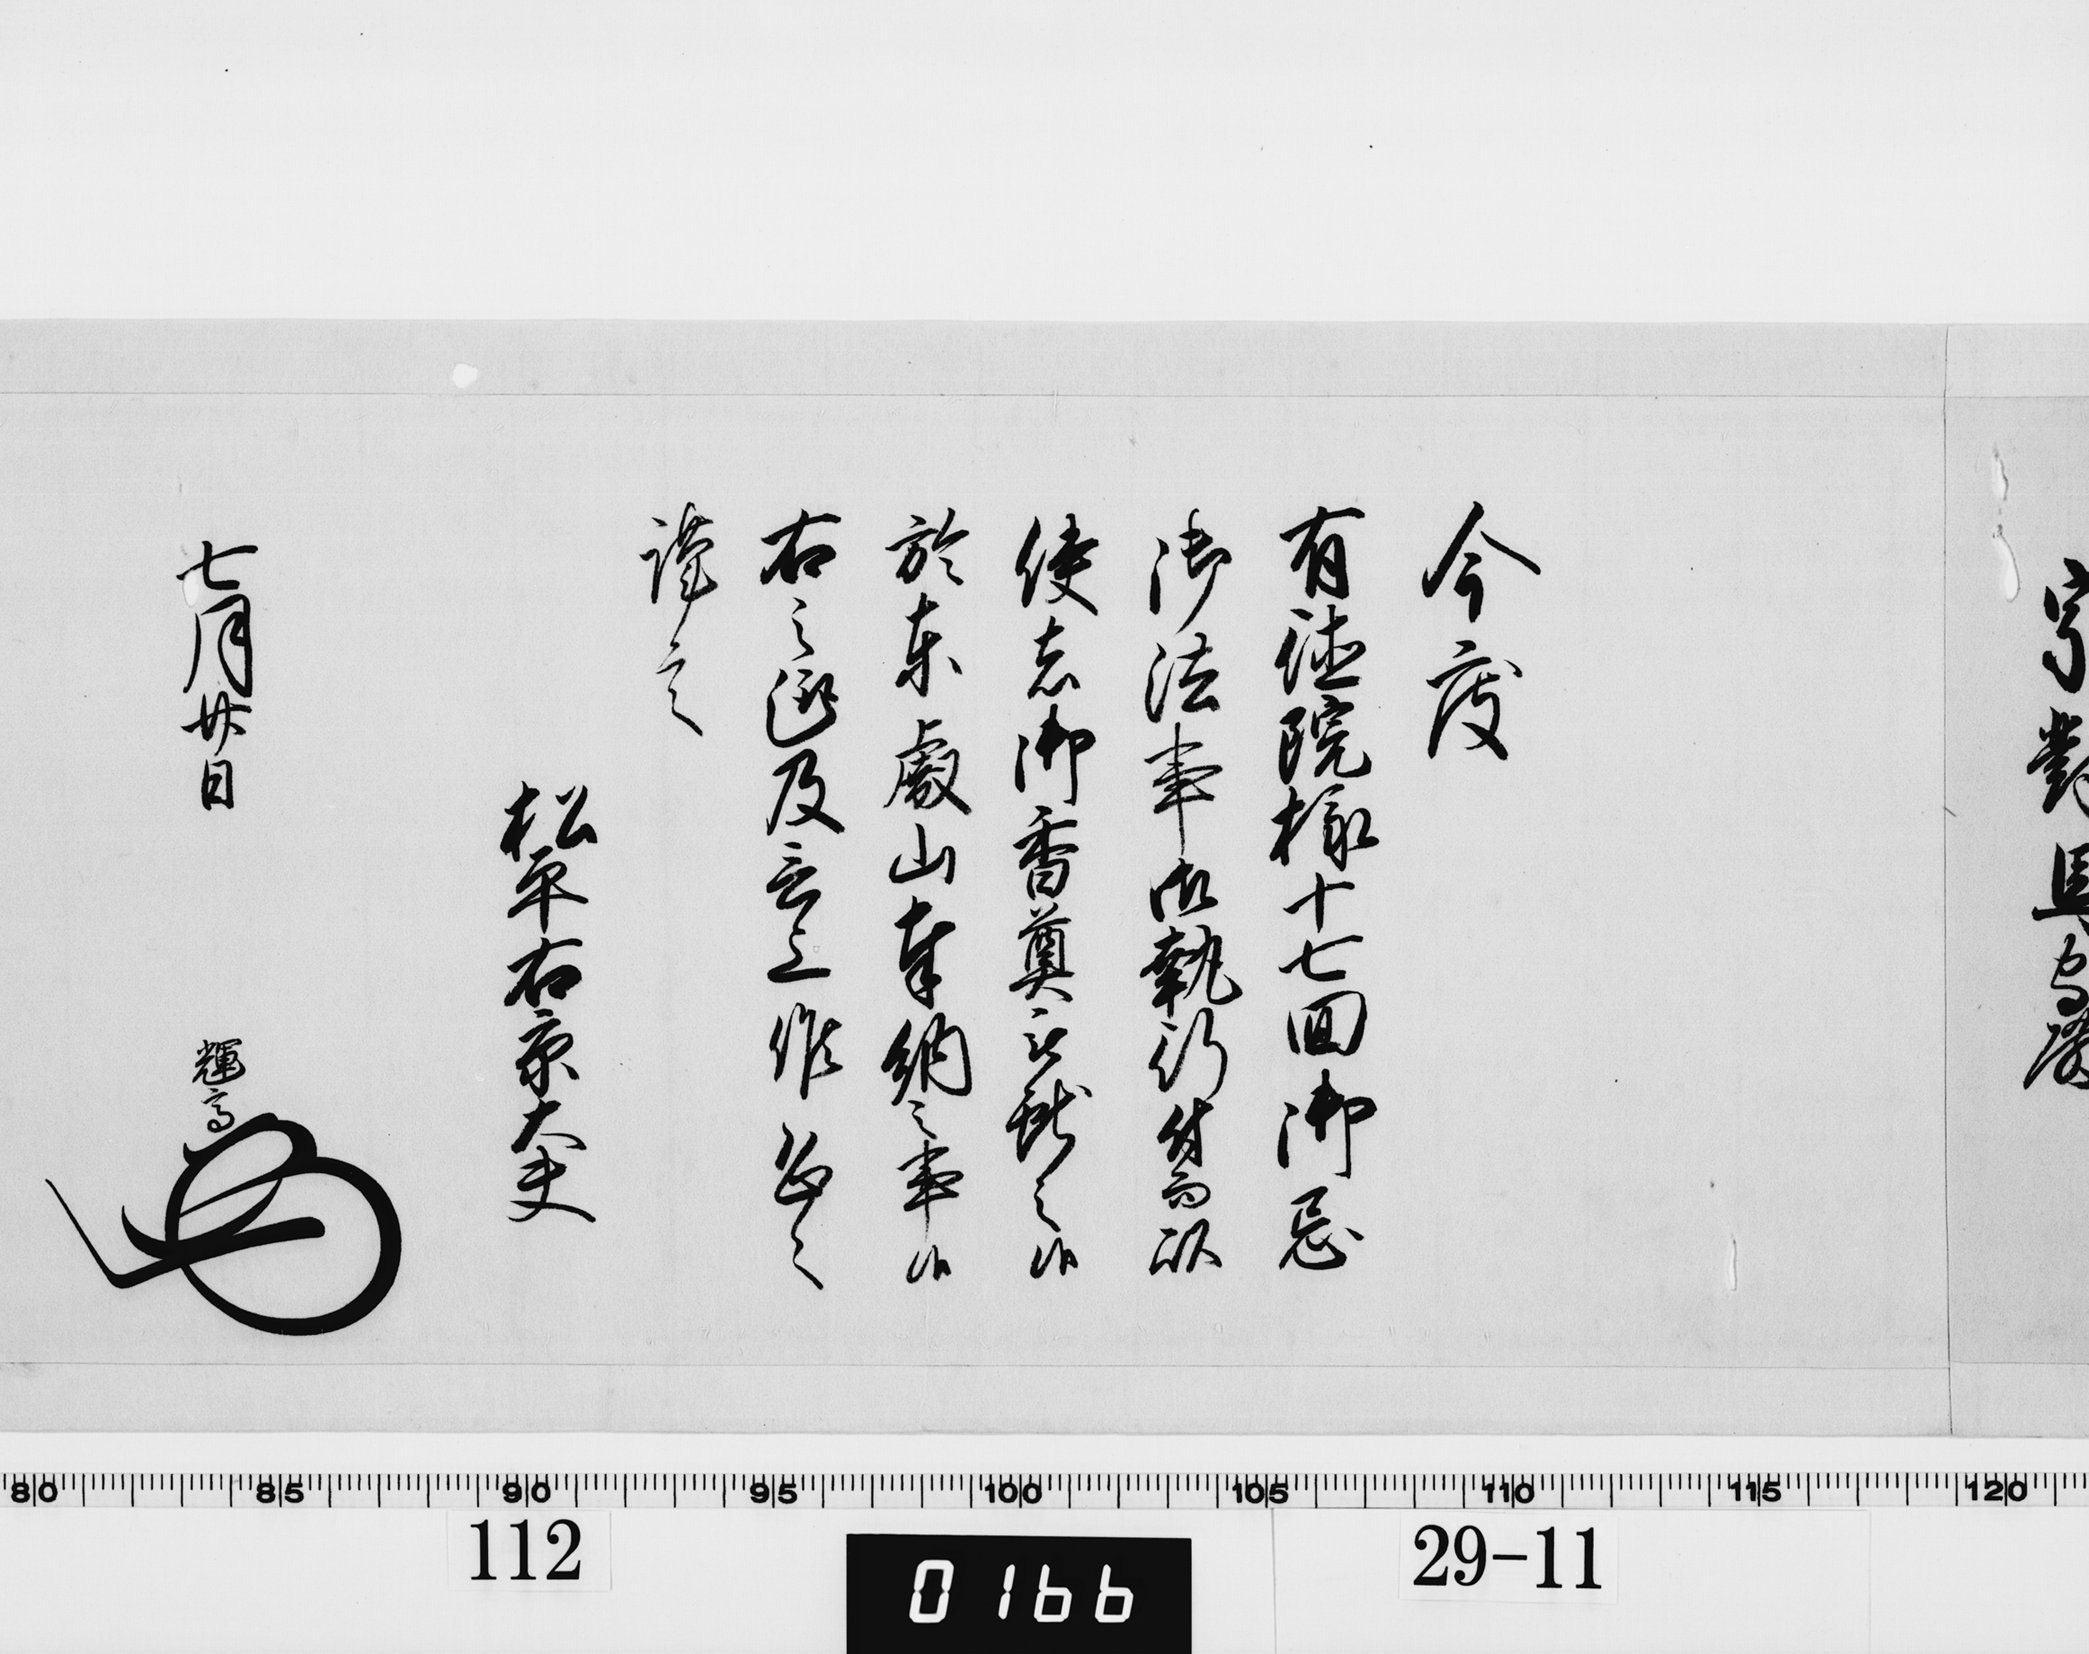 宗對馬守殿
今度
有徳院様十七回御忌
御法事御執行付而以
使者御香奠被献之候
於東叡山奉納之事候
右之趣及言上候恐々
謹言
松平右京大夫
七月廿日
輝高
80 85 90 95 100 105 110 115 120
112
0166
29-11